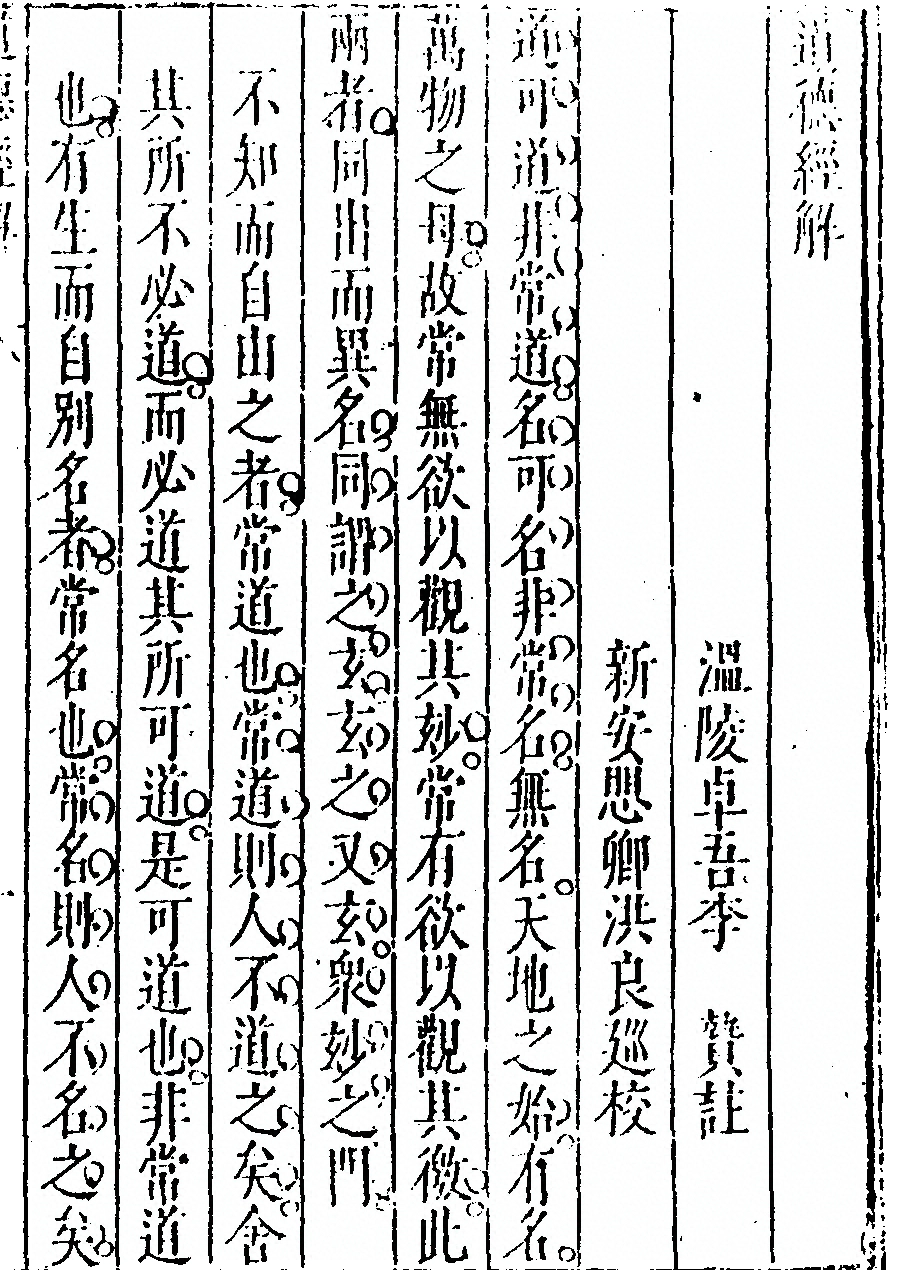 道德經解
溫陵卓吾李 贄註
新安思卿洪良巡校
道可道非常道名可名非常名無名天地之始有名
萬物之母故常無欲以觀其妙常有欲以觀其徼此
兩者同出而異名同謂之玄玄之又玄衆妙之門
不知而自由之者常道也常道則人不道之矣舍
其所不必道而必道其所可道是可道也非常道
也有生而自別名者常名也常名則人不名之矣